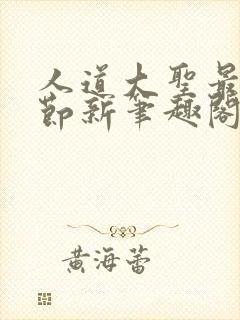 人道大聖最
節新筆趣閣
黄海蕾